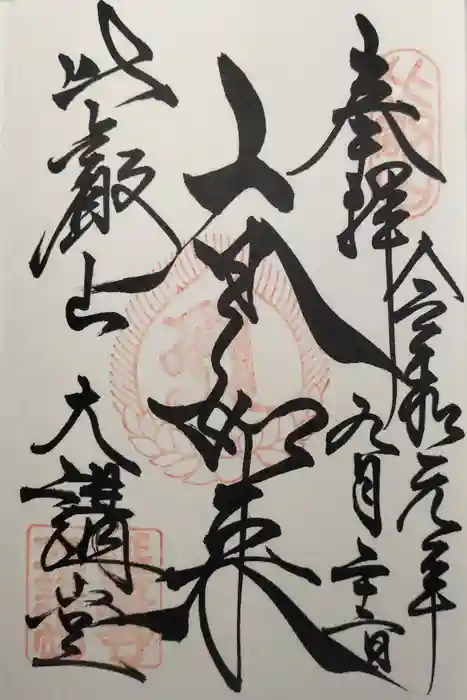 奉拝
令和元年
九月
大日如来
比叡山 大講堂